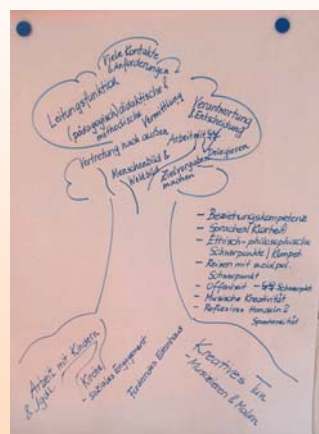 Viele Kontakte
& Anforderungen
Leitungsfunktion
(pädagogisch) didaktische &
methodische Vermittlung
Verantwortung
Entscheidung
Vertretung nach außen
Arbeit mit
Delegieren
Menschenbild &
Weltbild
Zielvorgaben
machen
- Beziehungskompetenz
- Sprachen / Klarheit
- Ethisch-philosophische
Schwerpunkte / Kompet.
- Reisen mit sozialpol.
Schwerpunkt
- Offenheit
- Musische Kreativität
- Reflexives Handeln &
Spontaneität
Arbeit mit Kindern
& Jgdl.
Kirche/
- soziales Engagement
Elternhaus
Kreatives Tun
- Musizieren & Malen